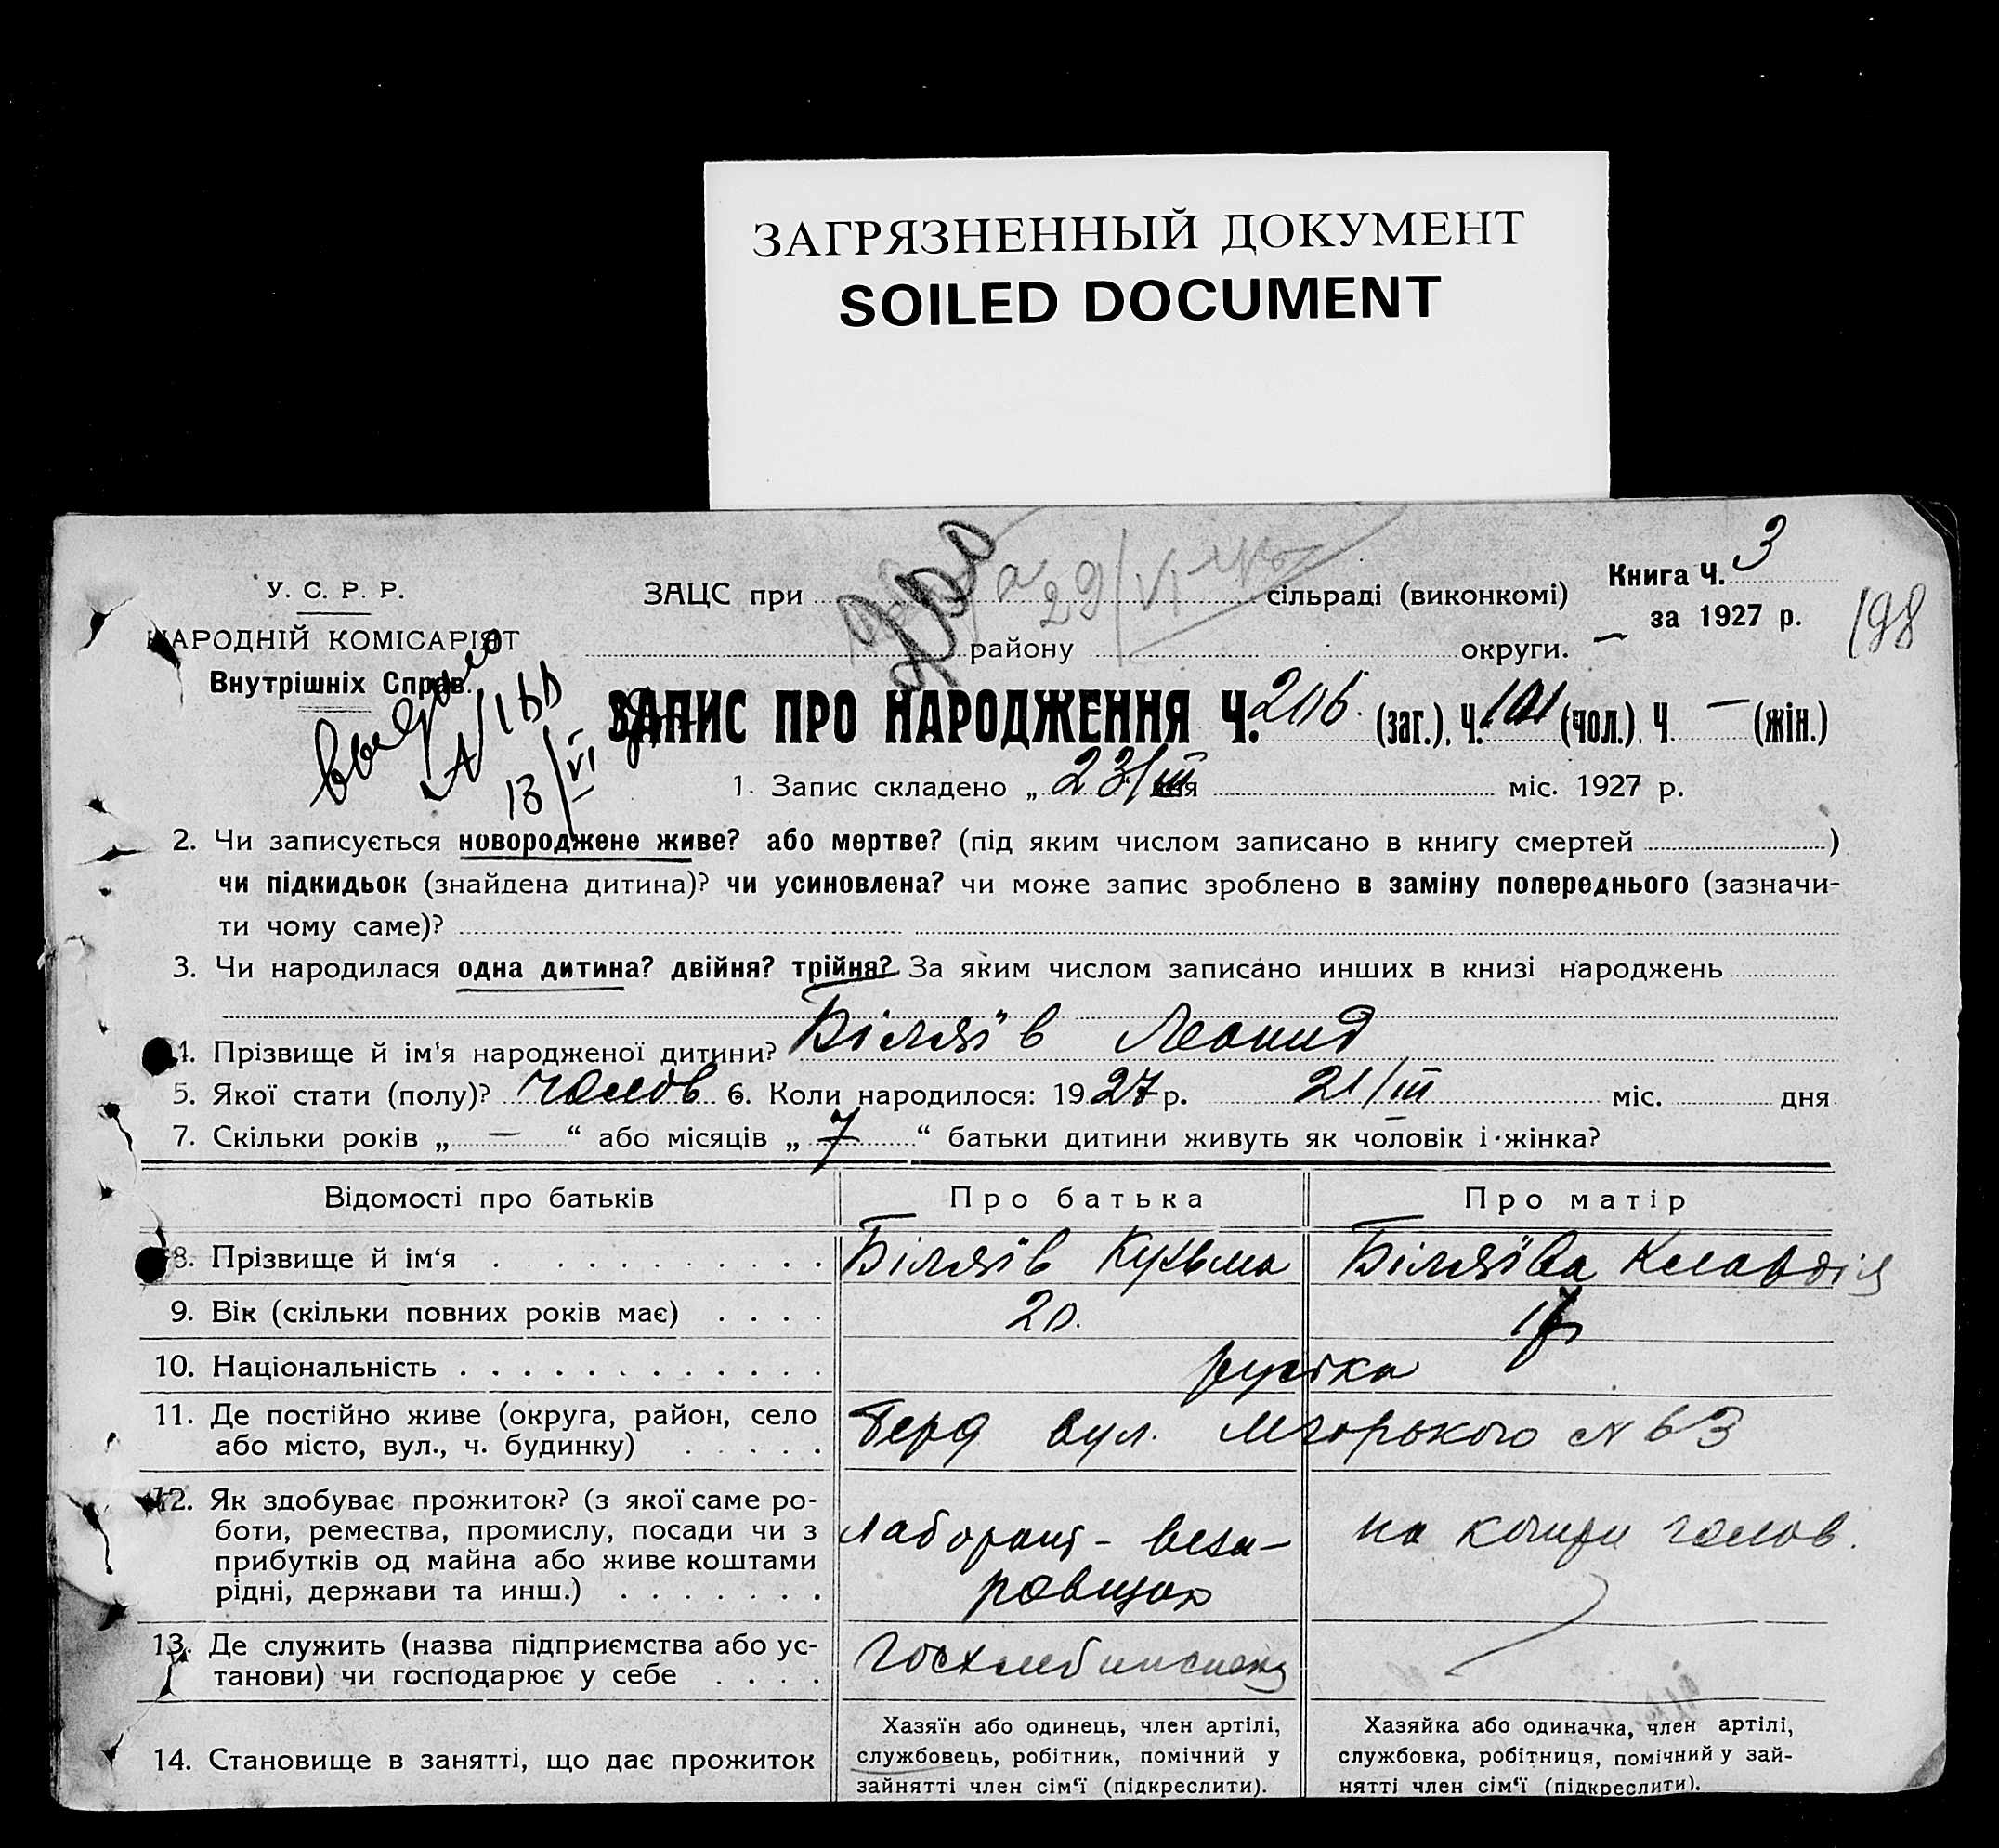 ЗАГРЯЗНЕННЫЙ ДОКУМЕНТ
SOILED DOCUMENT
Книга Ч. 3
за 1927 р.
198
У. С. Р. Р.
НАРОДНІЙ КОМІСАРІЯТ
Внутрішніх Справ.
ЗАЦС при 29/VI сільраді (виконкомі)
району округи. —
13/VI
ЗАПИС ПРО НАРОДЖЕННЯ Ч. 206 (заг.), Ч. 101 (чол.). Ч. — (жін.)
1. Запис складено „ 23/III міс. 1927 р.
2. Чи записується новороджене живе? або мертве? (під яким числом записано в книгу смертей )
чи підкидьок (знайдена дитина)? чи усиновлена? чи може запис зроблено в заміну попереднього (зазначи-
ти чому саме)?
3. Чи народилася одна дитина? двійня? трійня? За яким числом записано инших в книзі народжень
4. Прізвище й ім'я народженої дитини? Біляїв Леонид
5. Якої стати (полу)? чолов 6. Коли народилося: 1927 р. 21/III міс. дня
7. Скільки років „ — “ або місяців „ 7 “ батьки дитини живуть як чоловік і жінка?
Відомості про батьків Про батька Про матір
8. Прізвище й ім‘я Біляїв Кузьма Біляїва Клавдія
9. Вік (скільки повних років має) 20. 17
10. Національність руські
11. Де постійно живе (округа, район, село Берд вул. Мгорького N 63
або місто, вул., ч. будинку)
12. Як здобуває прожиток? (з якої саме ро-
боти, ремества, промислу, посади чи з лаборант-
прибутків од майна або живе коштами
рідні, держави та инш.) на кошти чолов.
13. Де служить (назва підприємства або ус- Госхлебинспекц
танови) чи господарює у себе
14. Становище в занятті, що дає прожиток
Хазяїн або одинець, член артілі,
службовець, робітник, помічний у
зайнятті член сім‘ї (підкреслити).
Хазяйка або одиначка, член артілі,
службовка, робітниця, помічний у зай-
нятті член сім‘ї (підкреслити).